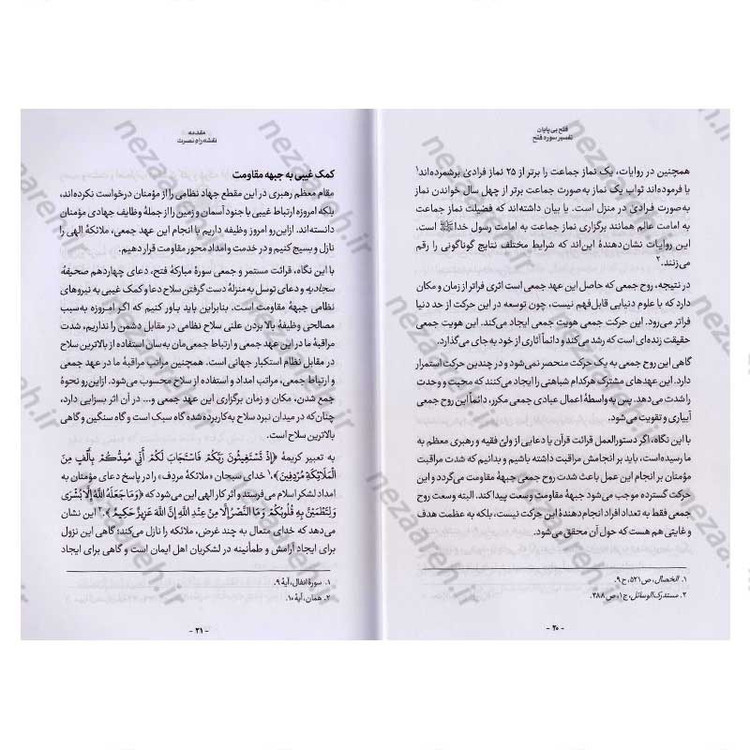 فتح بی‌پایان
تفسیر سوره فتح
همچنین در روایات، یک نماز جماعت را برتر از ۲۵ نماز فرادیٰ برشمرده‌اند۱
یا فرموده‌اند ثواب یک نماز به‌صورت جماعت برتر از چهل سال خواندن نماز
به‌صورت فرادیٰ در منزل است. یا بیان داشته‌اند که فضیلت نماز جماعت
به امامت عالم همانند برگزاری نماز جماعت به امامت رسول خداﷺ است.
این روایات نشان‌دهندهٔ این‌اند که شرایط مختلف نتایج گوناگونی را رقم
می‌زنند.۲
در نتیجه، روح جمعی که حاصل این عهد جمعی است اثری فراتر از زمان و مکان
دارد که با علوم دنیایی قابل‌فهم نیست، چون توسعه در این حرکت از حد دنیا
فراتر می‌رود. این حرکت جمعی هویت جمعی ایجاد می‌کند. این هویت جمعی
حقیقت زنده‌ای است که رشد می‌کند و دائماً آثاری از خود به جای می‌گذارد.
گاهی این روح جمعی به یک حرکت منحصر نمی‌شود و در چندین حرکت استمرار
دارد. این عهدهای مشترک هرکدام شباهتی را ایجاد می‌کنند که محبت و وحدت
را شدت می‌دهد. پس به‌واسطهٔ اعمال عبادی جمعی مکرر، دائماً این روح جمعی
آبیاری و تقویت می‌شود.
با این نگاه، اگر دستورالعمل قرائت قرآن یا دعایی از ولیّ فقیه و رهبری معظم به
ما رسیده است، باید بر انجامش مراقبت داشته باشیم و بدانیم که شدت مراقبت
مؤمنان بر انجام این عمل باعث شدت روح جمعی جبههٔ مقاومت می‌گردد و این
حرکت گسترده موجب می‌شود جبههٔ مقاومت وسعت پیدا کند. البته وسعت روح
جمعی فقط به تعداد افراد انجام‌دهندهٔ این حرکت نیست، بلکه به عظمت هدف
و غایتی هم هست که حول آن محقق می‌شود.
۱. الخصال، ص ۵۲۱، ح ۹.
۲. مستدرک الوسائل، ج۱، ص ۴۸۸.
- ۲۰ -
مقدمه
نقشه راه نصرت
کمک غیبی به جبهه مقاومت
مقام معظم رهبری در این مقطع جهاد نظامی را از مؤمنان درخواست نکرده‌اند،
بلکه امروزه ارتباط غیبی با جنود آسمان و زمین را از جملهٔ وظایف جهادی مؤمنان
دانسته‌اند. ازاین‌رو امروز وظیفه داریم با انجام این عهد جمعی، ملائکهٔ الهی را
نازل و بسیج کنیم و در خدمت و امداد محور مقاومت قرار دهیم.
با این نگاه، قرائت مستمر و جمعی سورهٔ مبارکهٔ فتح، دعای چهاردهم صحیفهٔ
سجادیه و دعای توسل به منزلهٔ دست گرفتن سلاح دعا و کمک غیبی به نیروهای
نظامی جبههٔ مقاومت است. بنابراین باید باور کنیم که اگر امروزه به‌سبب
مصالحی وظیفهٔ بالا بردن علنی سلاح نظامی در مقابل دشمن را نداریم، شدت
مراقبهٔ ما در این عهد جمعی و ارتباط جمعی‌مان به‌سان استفاده از بالاترین سلاح
در مقابل نظام استکبار جهانی است. همچنین مراتب مراقبهٔ ما در عهد جمعی
و ارتباط جمعی، مراتب امداد و استفاده از سلاح محسوب می‌شود. ازاین‌رو نحوهٔ
جمع شدن، مکان و زمان برگزاری این عهد جمعی و... در آن اثر بسزایی دارد،
چنان‌که در میدان نبرد سلاح به‌کاربرده‌شده گاه سبک است و گاه سنگین و گاهی
بالاترین سلاح است.
به تعبیر کریمهٔ ﴿إِذْ تَسْتَغِيثُونَ رَبَّكُمْ فَاسْتَجَابَ لَكُمْ أَنِّي مُمِدُّكُمْ بِأَلْفٍ مِنَ
الْمَلَائِكَةِ مُرْدِفِينَ﴾،۱ خدای سبحان «ملائکهٔ مردِف» را در پاسخ دعای مؤمنان به
امداد لشکر اسلام می‌فرستد و اثر کار الهی این می‌شود که ﴿وَمَا جَعَلَهُ اللهُ إِلَّا بُشْرَى
وَلِتَطْمَئِنَّ بِهِ قُلُوبُكُمْ وَمَا النَّصْرُ إِلَّا مِنْ عِنْدِ اللهِ إِنَّ اللهَ عَزِيزٌ حَكِيمٌ﴾.۲ این نشان
می‌دهد که خدای متعال به چند غرض، ملائکه را نازل می‌کند؛ گاهی این نزول
برای ایجاد آرامش و طمأنینه در لشکریان اهل ایمان است و گاهی برای ایجاد
۱. سورهٔ انفال، آیهٔ ۹.
۲. همان، آیهٔ ۱۰.
- ۲۱ -
nezaareh.ir